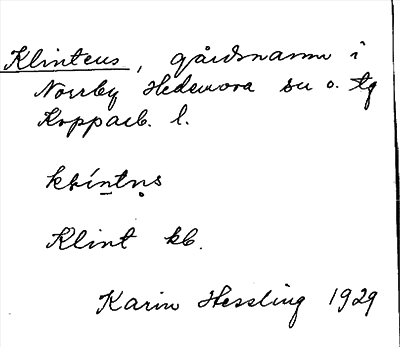 Klintens, gårdsnamn i
Norrby Hedemora sn o. tg
Kopparb. l.
Klint kb.
Karin Hessling 1929